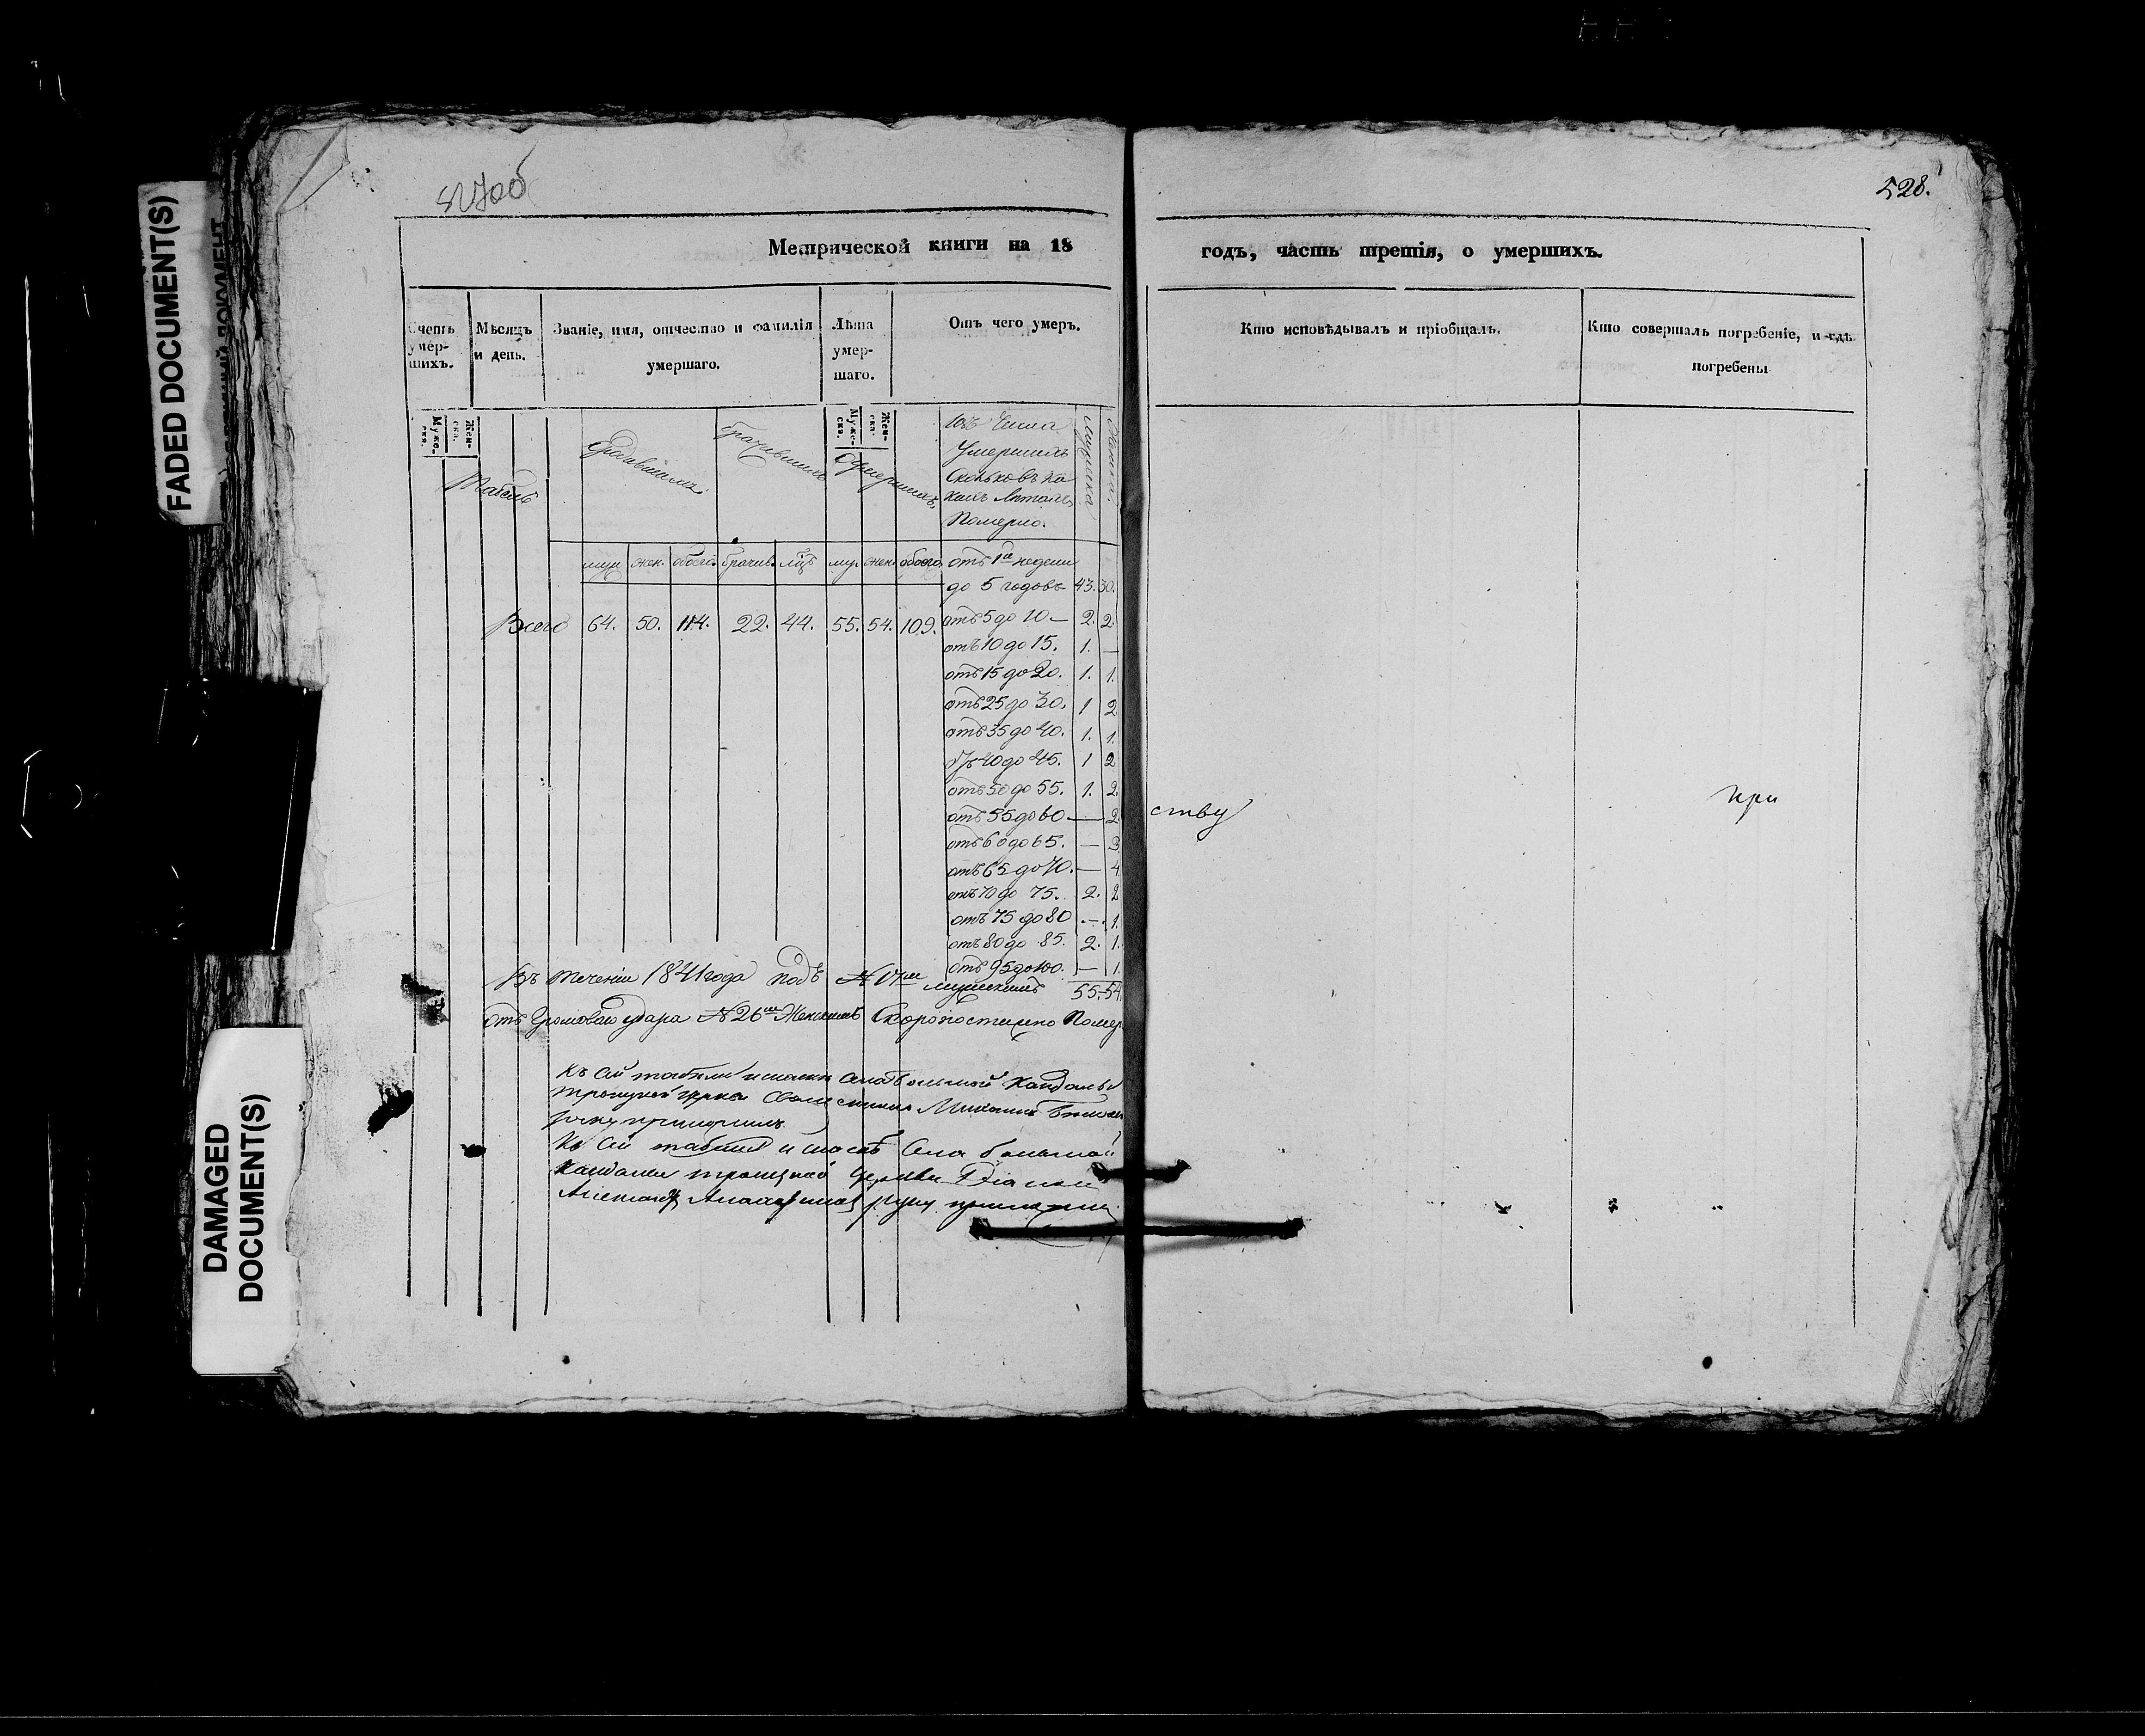 527об
528.
FADED DOCUMENT(S)
DAMAGED
DOCUMENT(S)
Метрической книги на 18
годъ, часть третія, о умершихъ.
Счетъ умер-шихъ.
Мѣсяцъ и день.
Званіе, имя, отчество и фамилія умершаго.
Лѣта умер-шаго.
Отъ чего умеръ.
Кто исповѣдывалъ и пріобщалъ.
Кто совершалъ погребеніе, и гдѣ
погребены
Муже-ска.
Жен-ска.
Муже-ска.
Жен-ска.
Табель
родившимъ
брачившимъ
умершимъ
Изъ числа
Умершихъ
Сколько въ ка
кихъ лѣтахъ
Померло.
муж жен. обоего брачив. лицъ му. жен. обоего
Всего 64. 50. 114. 22. 44. 55. 54. 109.
отъ 1й недели
до 5 годовъ 43. 30.
отъ 5 до 10 — 2. 2
отъ 10 до 15. 1. —
отъ 15 до 20. 1. 1.
отъ 25 до 30. 1 2
отъ 35 до 40. 1. 1.
отъ 40 до 45. 1 2
отъ 50 до 55. 1. 2
отъ 55 до 60 — 2
отъ 60 до 65. —
отъ 65 до 70. — 4
отъ 70 до 75. 2. 2
отъ 75 до 80 — 1.
отъ 80 до 85. 2. 1.
отъ 95 до 100. — 1.
55. 54.
Въ теченіи 1841 года подъ № мужескимъ
отъ Громоваго удара № 26мъ Женскимъ Скоропостижно Помер
Къ сей табели села Большой Кандалы
Троицкой церкви Священникъ
руку приложилъ
Къ сей табели села большой
Кандалы троицкой Церкви Діаконъ
руку приложилъ
ству
при